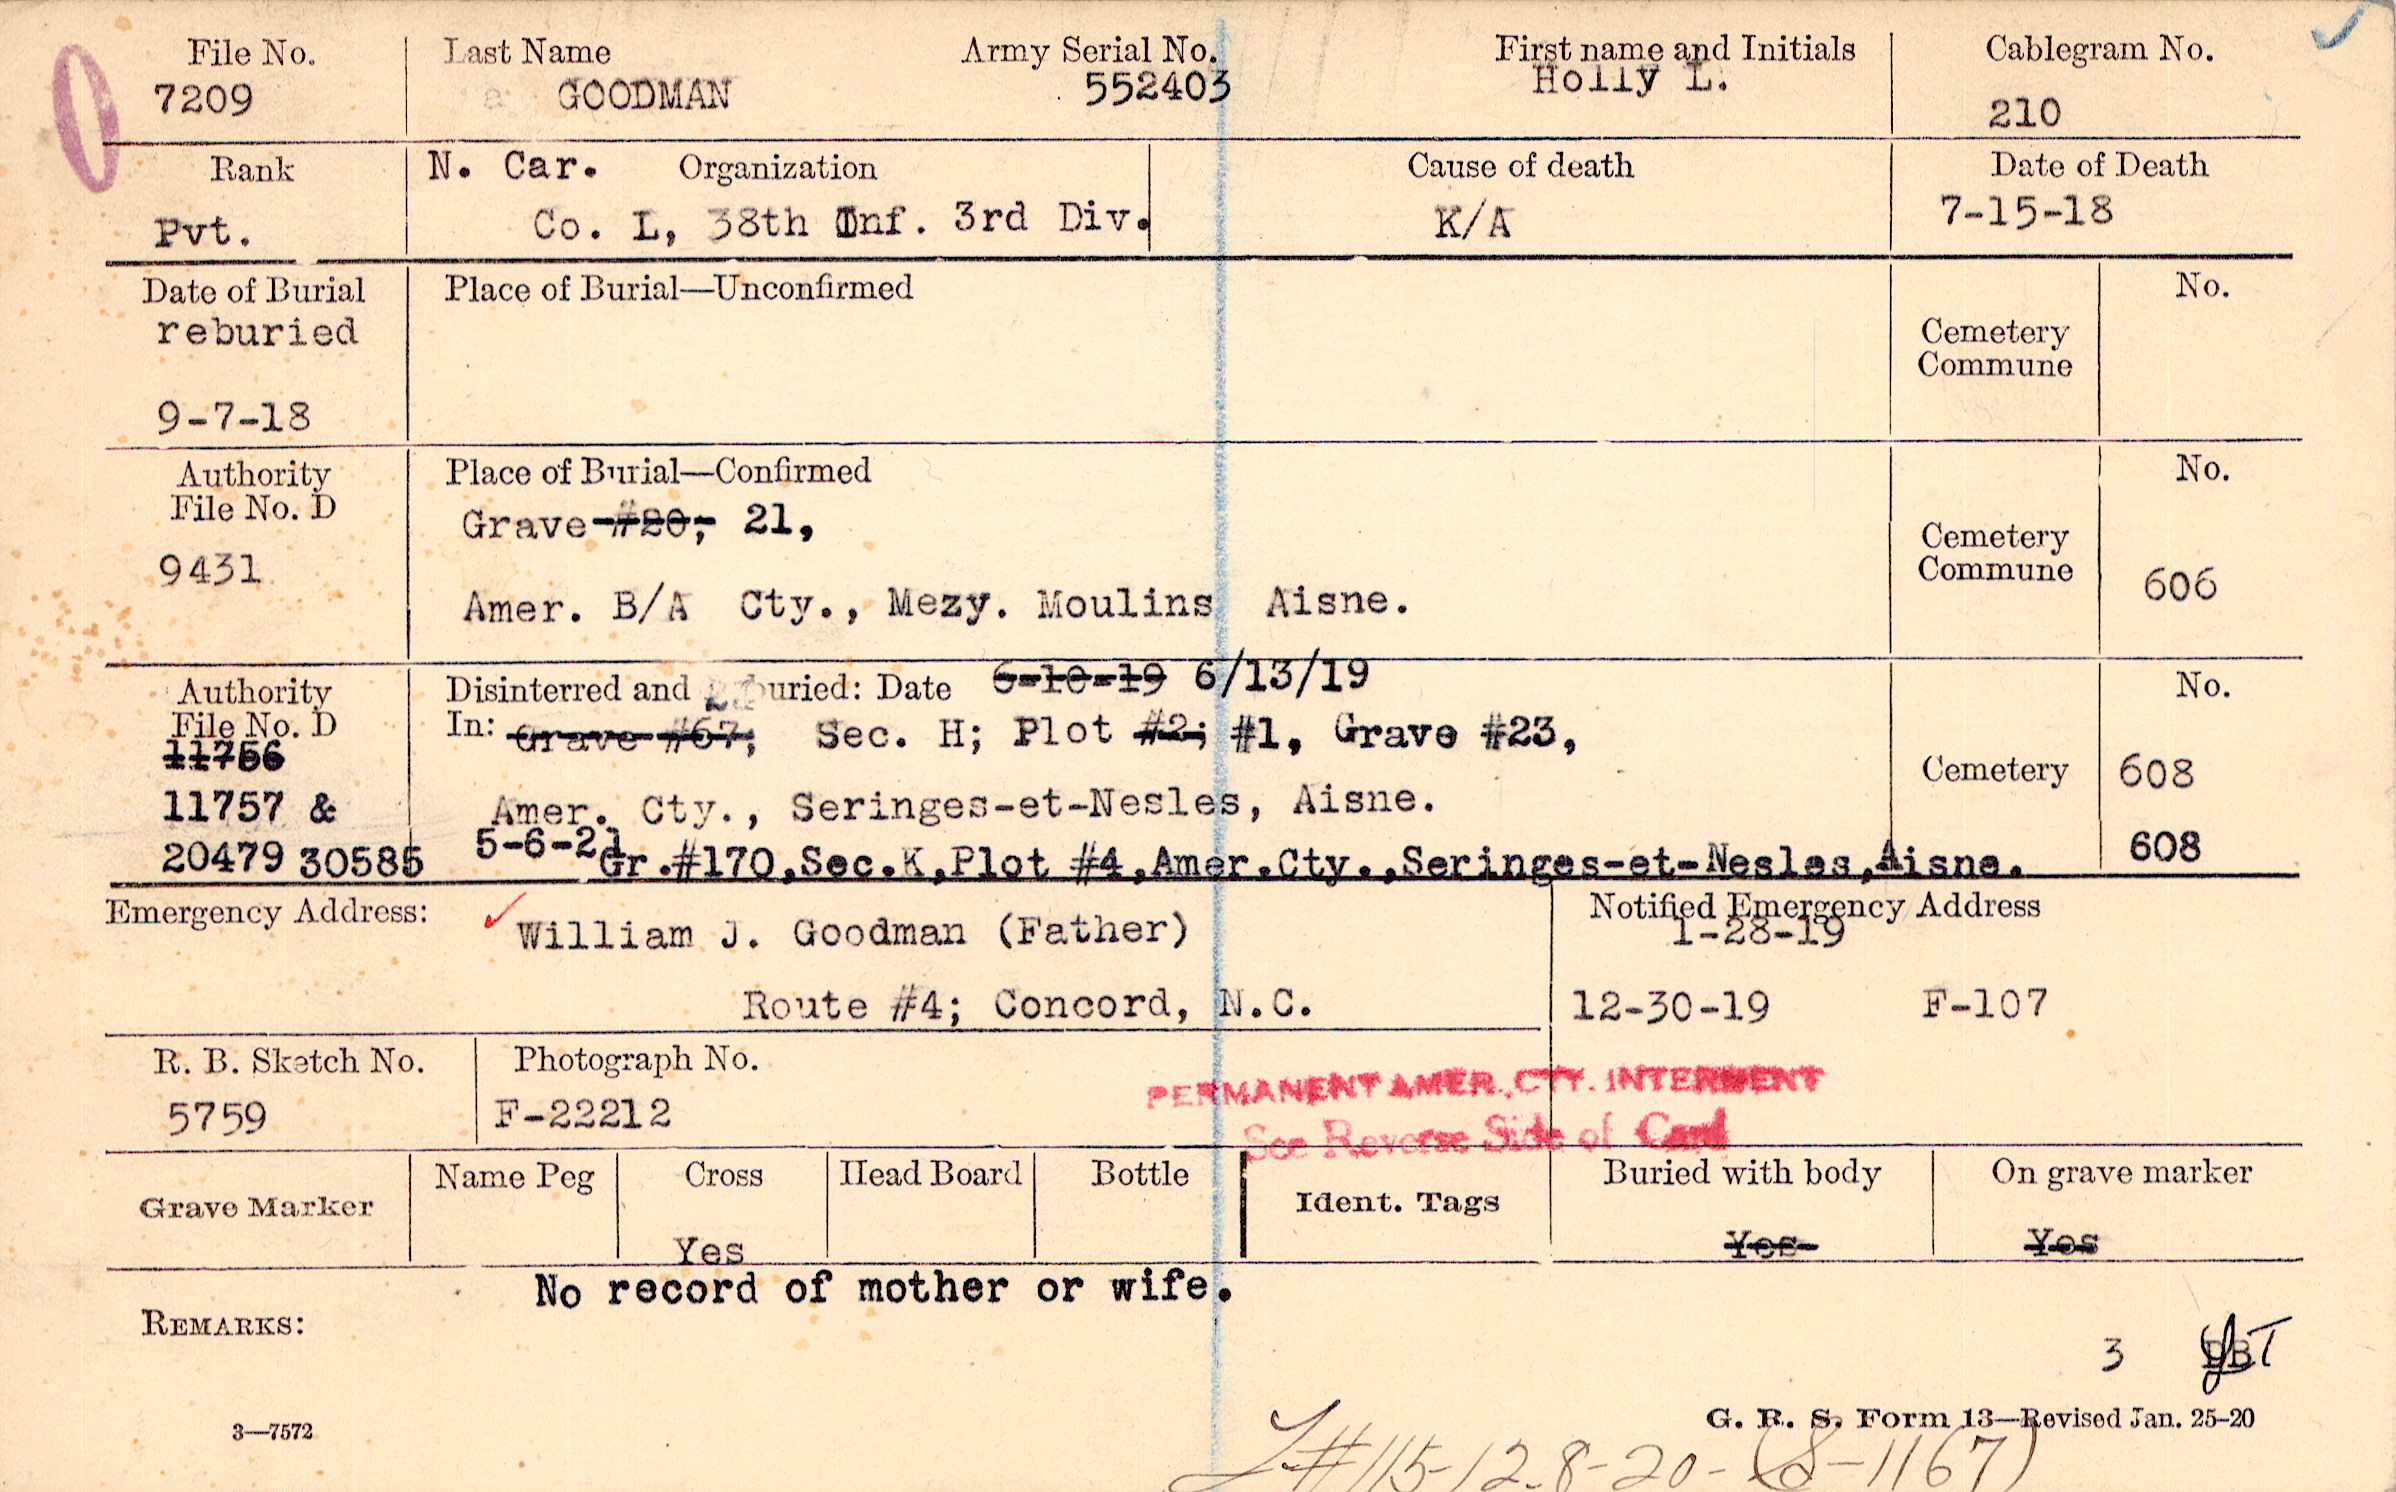 File No. Last Name Army Serial No. First name and Initials Cablegram No.
7209 GOODMAN 552403 Holly L. 210
Rank N. Car. Organization Cause of death Date of Death
Pvt. Co. L, 38th Inf. 3rd Div. K/A 7-15-18
Date of Burial Place of Burial—Unconfirmed No.
reburied Cemetery
Commune
9-7-18
Authority Place of Burial—Confirmed No.
File No. D
Grave #20, 21,
9431 Cemetery
Commune 606
Amer. B/A Cty., Mezy. Moulins Aisne.
Authority Disinterred and buried: Date 6-10-19 6/13/19 No.
File No. D In: Grave #67; Sec. H; Plot #2; #1, Grave #23,
11756 Cemetery 608
11757 & Amer. Cty., Seringes-et-Nesles, Aisne.
20479 30585 5-6-21 Gr.#170,Sec.K,Plot #4,Amer.Cty.,Seringes-et-Nesles,Aisne. 608
Emergency Address: William J. Goodman (Father) Notified Emergency Address
1-28-19
Route #4; Concord, N.C. 12-30-19 F-107
R. B. Sketch No. Photograph No.
5759 F-22212
PERMANENT AMER. CTY. INTERMENT
See Reverse Side of Card
Grave Marker Name Peg Cross Head Board Bottle Ident. Tags Buried with body On grave marker
Yes Yes Yes
No record of mother or wife.
REMARKS:
3
3—7572 G. R. S. Form 13—Revised Jan. 25-20
#115-12-8-20-(S-1167)